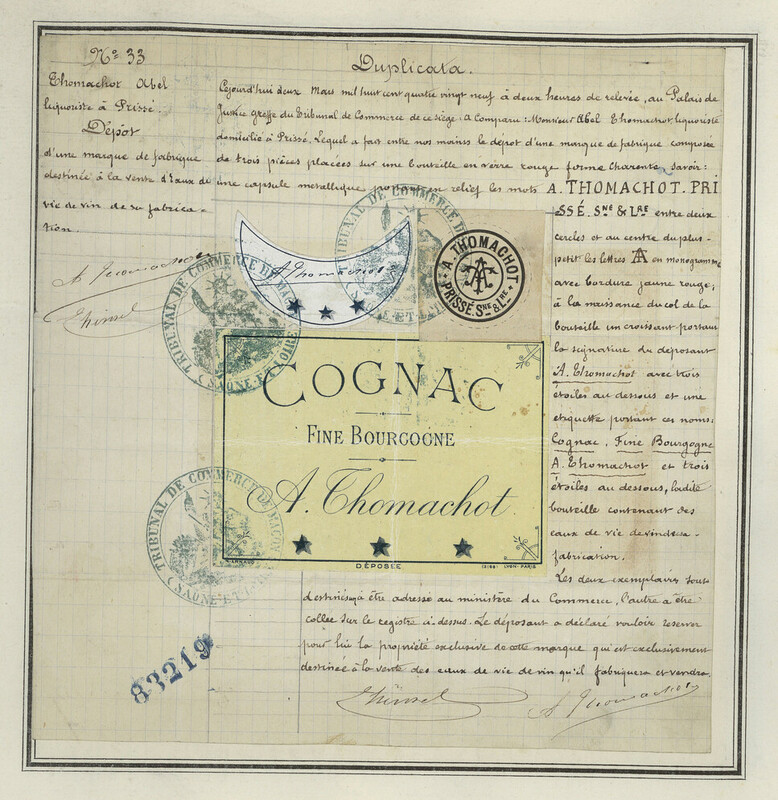 No 33
Thomachot Abel
liquoriste à Prissé.
Dépôt
d'une marque de fabrique
destinée à la vente d'Eaux de
vie de vin de sa fabrica-
tion.
A Thomachot
Duplicata.
Cejourd'hui deux Mars mil huit cent quatre vingt neuf à deux heures de relevée, au Palais de
Justice greffe du Tribunal de Commerce de ce siège: a Comparu: Monsieur Abel Thomachot liquoriste
domicilié à Prissé. Lequel a fait entre nos mains le dépôt d'une marque de fabrique composée
de trois pièces placées sur une bouteille en verre rouge forme charente, savoir:
une capsule métallique portant en relief les mots A. THOMACHOT. PRI
SSÉ. SNE & LRE entre deux
cercles et au centre du plus-
petit les lettres AT en monogramme
avec bordure jaune rouge;
à la naissance du col de la
bouteille un croissant portant
la signature du déposant
A. Thomachot avec trois
étoiles au dessous et une
etiquette portant ces noms:
Cognac, Fine Bourgogne
A. Thomachot et trois
étoiles au dessous, ladite
bouteille contenant des
eaux de vie de vin de sa
fabrication.
Les deux exemplaires sont
destinés à être adressé au ministère du Commerce, l'autre a être
collée sur le registre ci-dessus. Le déposant a déclaré vouloir reserver
pour lui la propriété exclusive de cette marque qui est exclusivement
destinée à la vente des eaux de vie de vin qu'il fabriquera et vendra.
A Thomachot
A Thomachot
A. THOMACHOT
PRISSÉ. SNE & LRE
COGNAC
FINE BOURGOGNE
A. Thomachot
DÉPOSÉE
LYON-PARIS
TRIBUNAL DE COMMERCE DE
TRIBUNAL DE COMMERCE DE MACON
(SAÔNE ET LOIRE)
TRIBUNAL DE COMMERCE DE MACON
(SAÔNE ET LOIRE)
83219